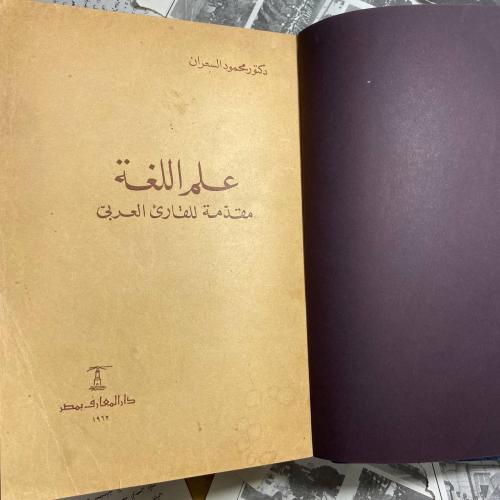 دكتور محمود السعران
علم اللغة
مقدّمة للقارئ العربي
دار المعارف بمصر
١٩٦٢